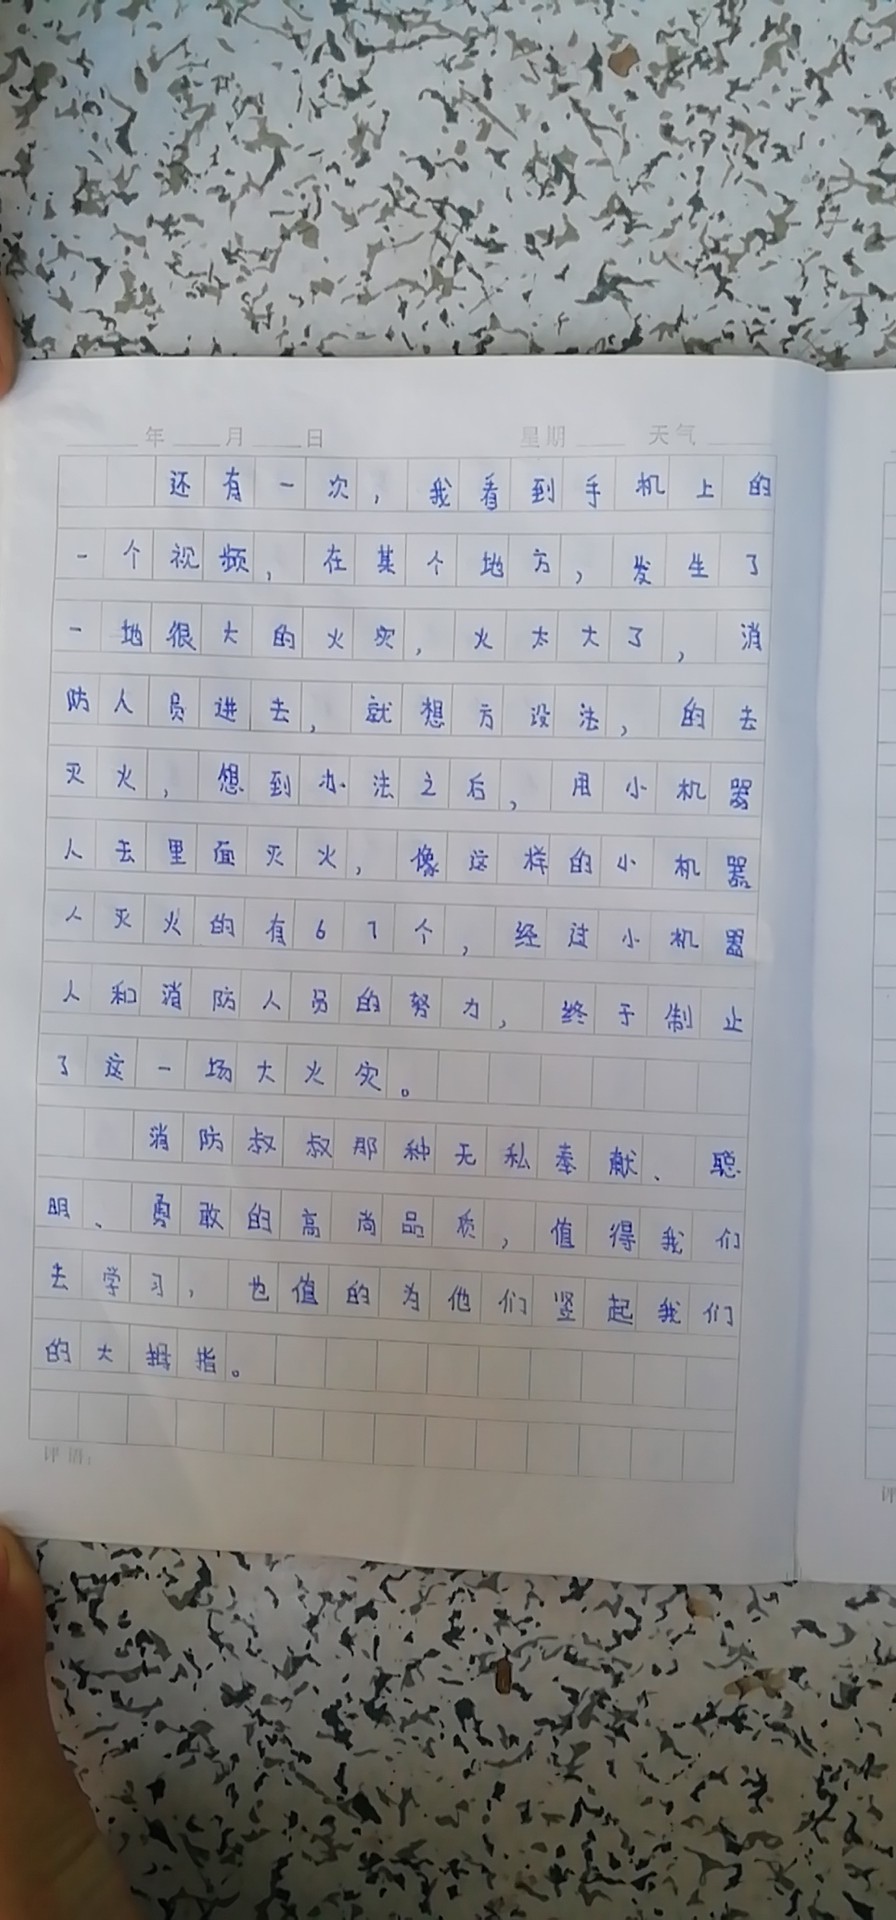 年 月 日 星期 天气
还有一次，我看到手机上的
一个视频，在某个地方，发生了
一地很大的火灾，火太大了，消
防人员进去，就想方设法，的去
灭火，想到办法之后，用小机器
人去里面灭火，像这样的小机器
人灭火的有67个，经过小机器
人和消防人员的努力，终于制止
了这一场大火灾。
消防叔叔那种无私奉献、聪
明、勇敢的高尚品质，值得我们
去学习，也值的为他们竖起我们
的大拇指。
评语：